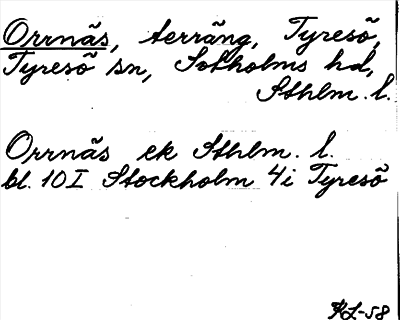 Orrnäs, terräng, Tyresö,
Tyresö sn, Sotholms hd,
Sthlm. l.
Orrnäs ek Sthlm. l.
bl. 10I Stockholm 4i Tyresö
RL-58